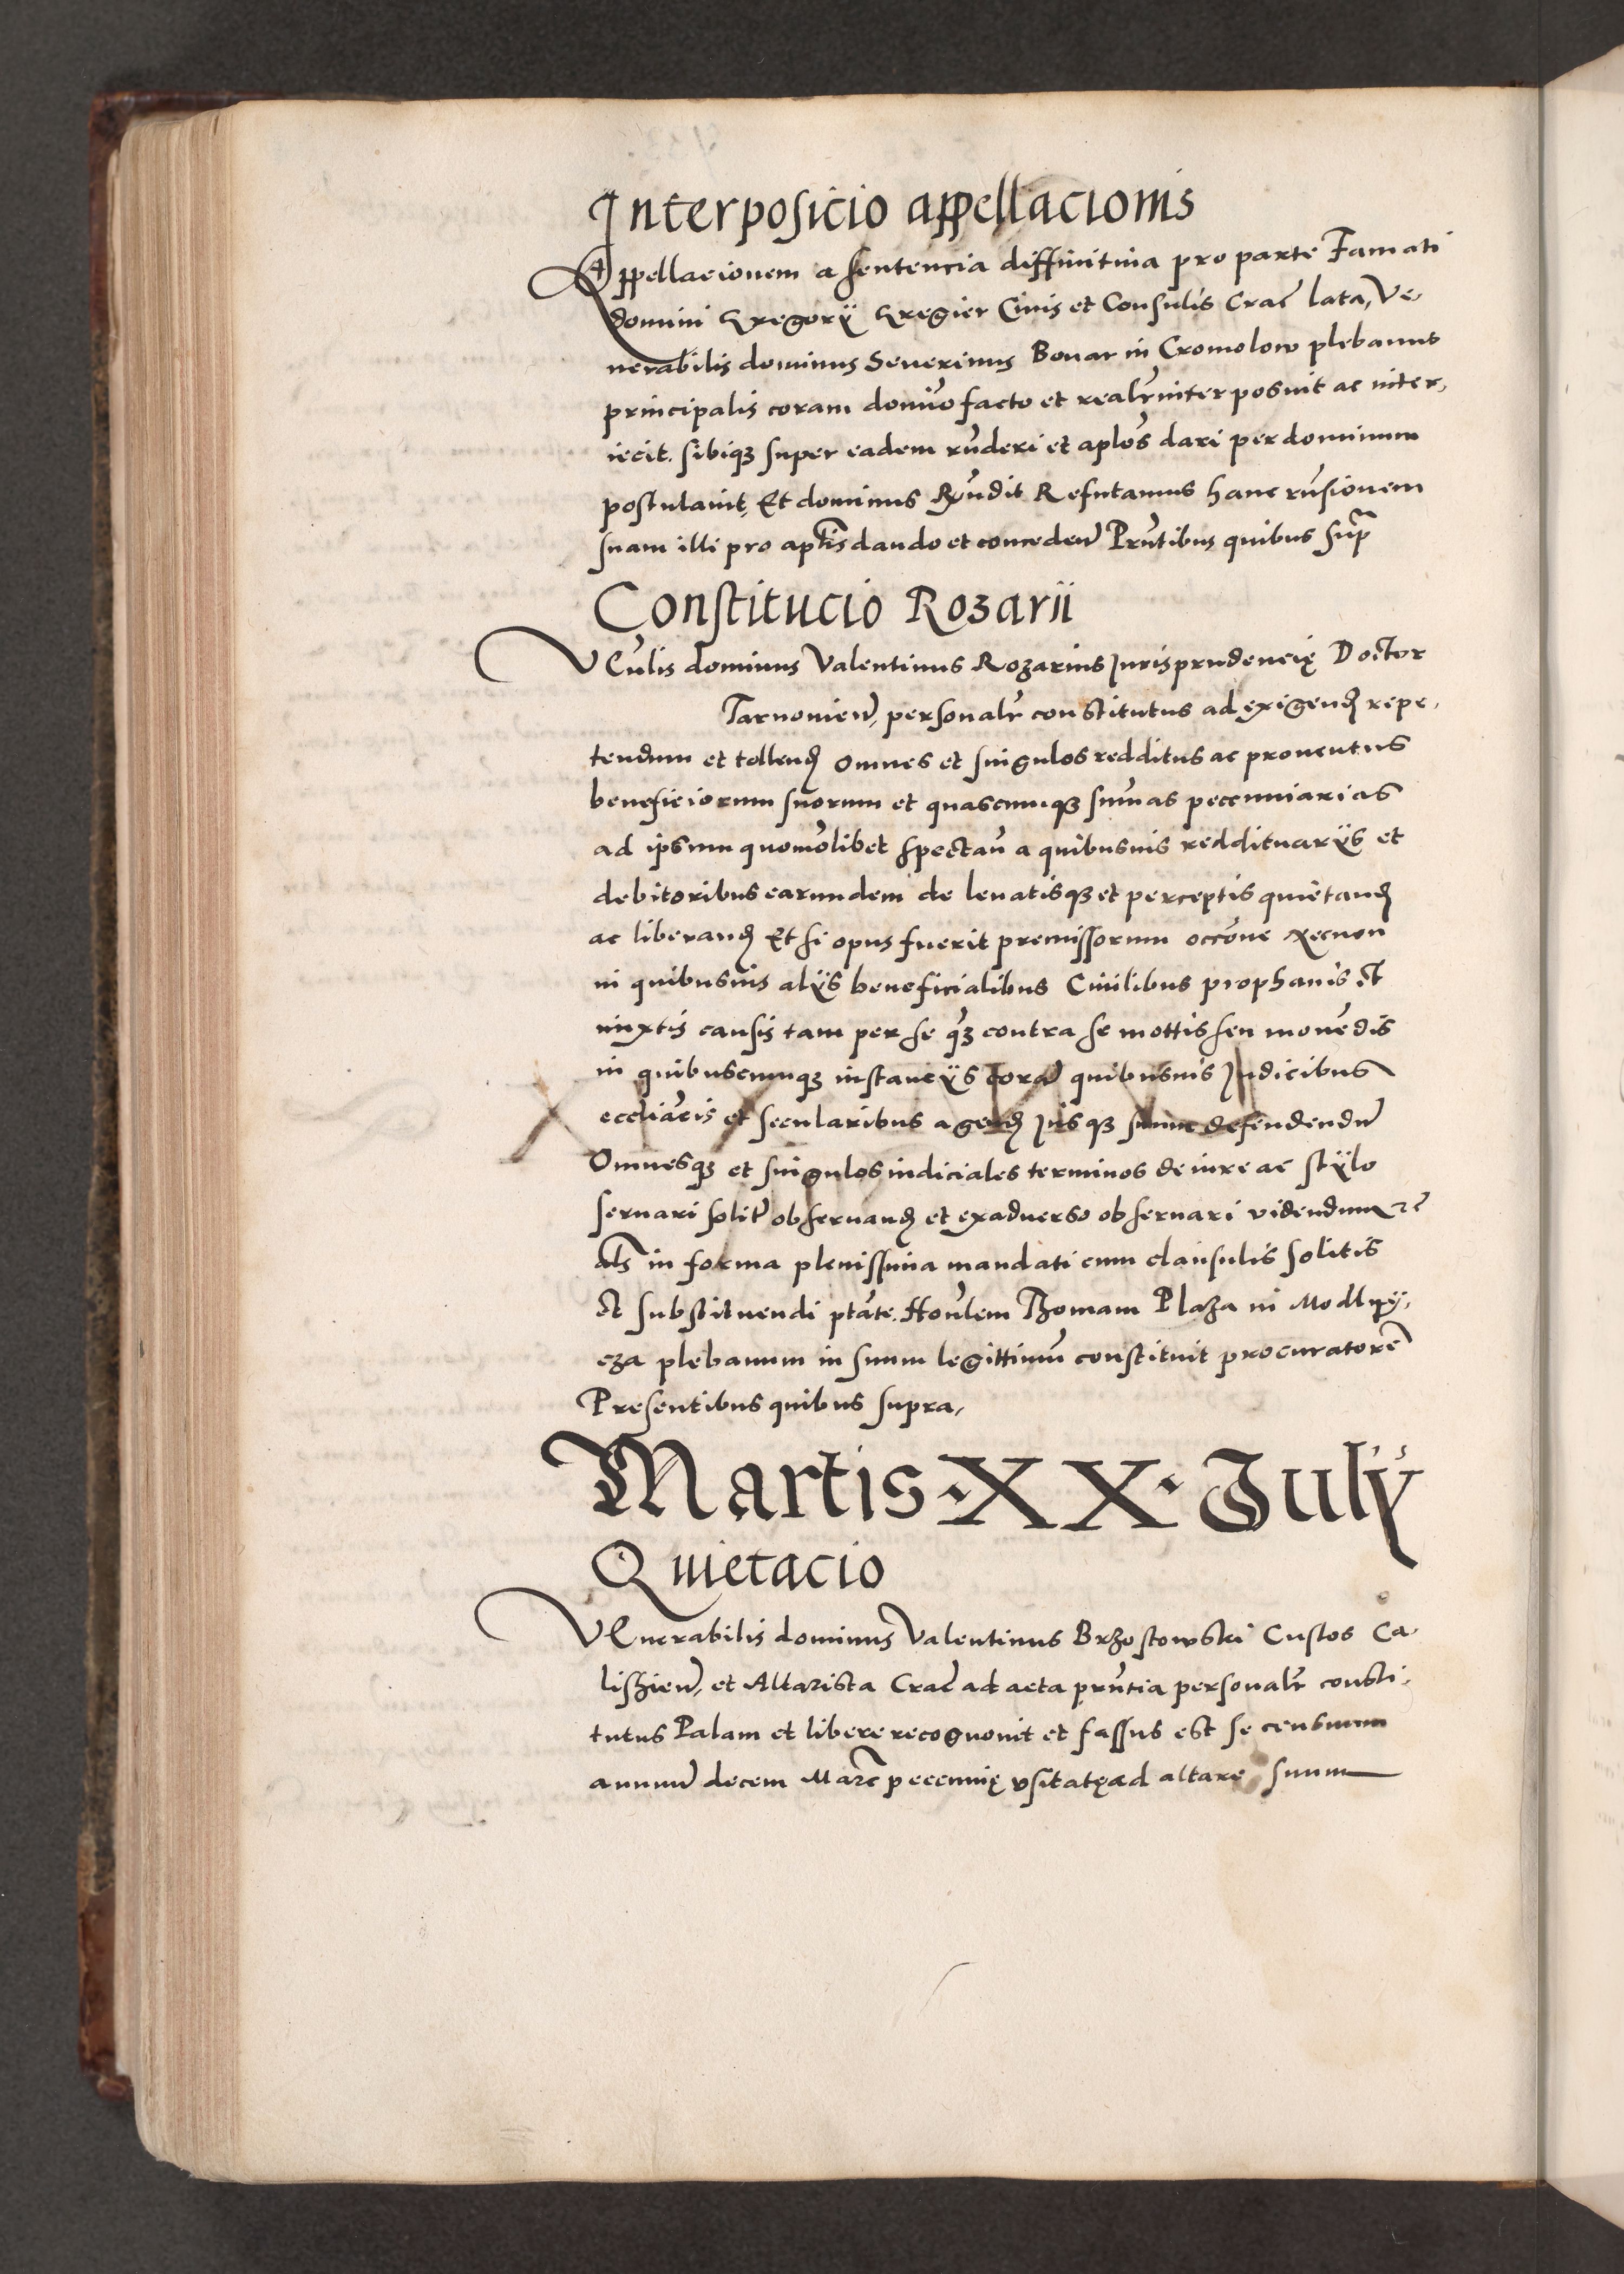 Interposicio appellacionis
Appellacionem a sentencia diffinitiua pro parte Famati
domini Gregorÿ Gregier Ciuis et Consulis Crac̃ lata, Ve-
nerabilis dominus Seuerinus Bonar in Cromolow plebanus
principalis coram domi͠o facto et realr̃ interposuit ac inter-
iecit. sibiqꝫ super eadem rñderi et aplõs dari per dominum
postulauit, Et dominus Rñdit Refutamus hanc rñsionem
suam illi pro aptl̃is dando et conceden̄ Prñtibus quibus supᷓ
Constitucio Rozarii
VEn̄lis dominus Valentinus Rozarius Jurisprudencię Doctor
Tarnouien̄, personalr̃ constitutus ad exigenđ repe-
tendum et tollenđ omnes et singulos redditus ac prouentus
beneficiorum suorum et quascumqꝫ sum̃as pecunniarias
ad ipsum quomõlibet spectan̄ a quibusuis reddituarÿs et
debitoribus earundem de leuatisqꝫ et perceptis quietanđ
ac liberanđ Et si opus fuerit premissorum occõne Necnon
in quibusuis alÿs beneficialibus Ciuilibus prophanis et
mixtis causis tam per se qꝫ contra se mottis seu mouẽdis
in quibuscumqꝫ instancÿs corã quibusuis Judicibus
eccl̃iacis et secularibus agenđ Jusqꝫ suum defendendũ
Omnesqꝫ et singulos iudiciales terminos de iure ac stÿlo
seruari solitũ obseruanđ et exaduerso obseruari videndum ⁊c̃
al̃s in forma plenissima mandati cum clausulis solitis
et substituendi ptãte. Hon̄lem Thomam Plaza in Modlnÿ-
cza plebanum in suum legittimũ constituit procuratorẽ
Presentibus quibus supra,
Martis · XX · Julÿ
Quietacio
VEnerabilis dominus Valentinus Brzostowski Custos Ca-
lisszien̄, et Altarista Crac̃ ad acta prñtia personalr̃ consti-
tutus Palam et libere recognouit et fassus est se censuum
annuũ decem Marc̃ pecunnię vsitatę ad altare suum